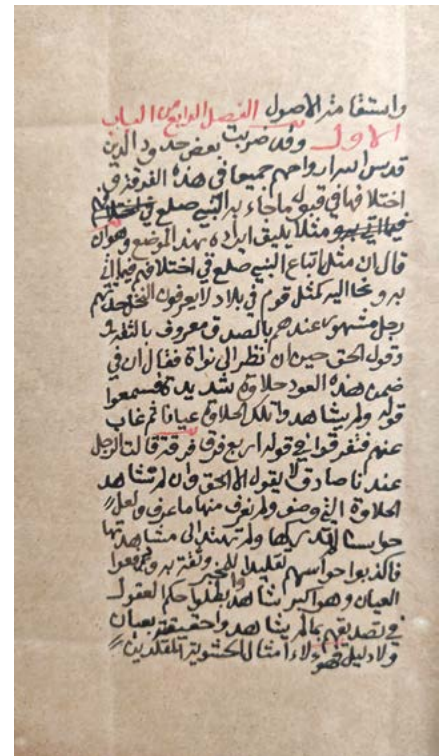 واستقامة الاصول الفصل الرابع من الباب
الاول وقد ضربت بعض حدود الدين
قدس اسرار واحهم جميعا في هذه الفرقة في
اختلافها في قبول ما جاء به النبي صلع في
فيما اتى به ومثلا يليق ايراده بهذا الموضع وهو ان
قال ان مثل اتباع النبي صلع في اختلافهم فيما اتى
به ونحا اليه كمثل قوم في بلاد لا يعرفون النخل
رجل مشهور عندهم بالصدق معروف بالثقة
وقول الحق حين ان نظر الى نواة فقال ان في
ضمن هذه العود حلاوة شديدة فسمعوا
قوله ولم يشاهدوا تلك الحلاوة عيانا ثم غاب
عنهم فتفرقوا في قوله اربع فرق فرقة قالت الرجل
عندنا صادق لا يقول الا الحق وان لم نشاهد
الحلاوة التي وصف ولم نعرف منها ما عرف ولعل
حواسنا لا تدركها ولم تهتد الى مشاهدتها
فاكذبوا حواسهم تقليدا للمخبر وثقة به ودفعوا
العيان وهو اكبر شاهد وابطلوا حكم العقول
في تصديقهم بما لم يشاهدوا حقيقته بعيان
ولا دليل فهؤلاء امثال الحشوية المقلدين